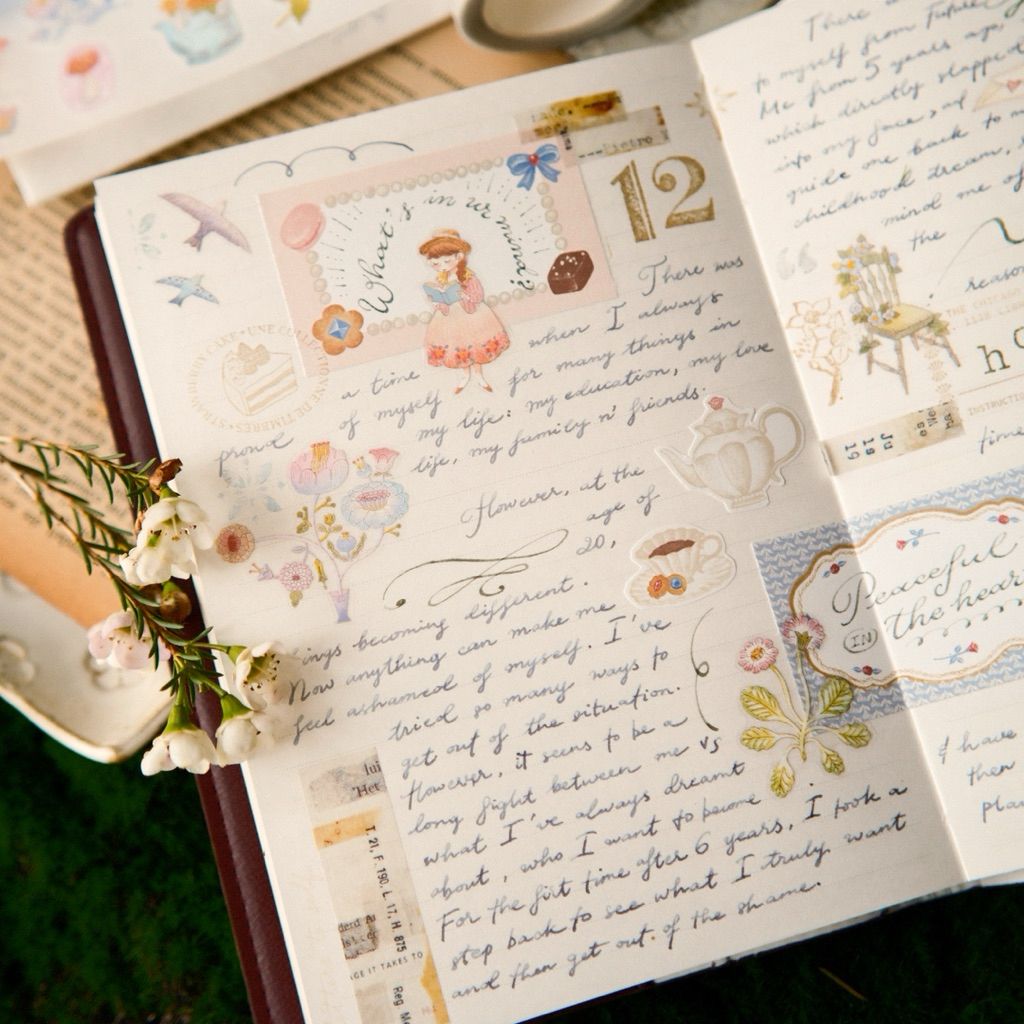 What's in ur mind?
12
There was
a time when I always
proud of myself for many things in
my life: my education, my love
life, my family n' friends.
However, at the
age of
20,
ings becoming different.
Now anything can make me
feel ashamed of myself. I've
tried so many ways to
get out of the situation.
However, it seems to be a
long fight between me vs
what I've always dreamt
about, who I want to become
For the first time after 6 years, I took a
step back to see what I truly want
and then get out of the shame.
STRAWBERRY CAKE
UNE COLLECTIONNE DE TIMBRES
T. 21, F. 190, L. 17, H. 875
GE IT TAKES TO
Reg
There
to myself from Future
Me from 5 years ago,
which directly slapped
into my face, and
guide me back to m
childhood dream,
mind me of
the
reason
THE CHICAGO
INSTRUCTION
time
Peaceful
IN
the hear
I have
then
pla